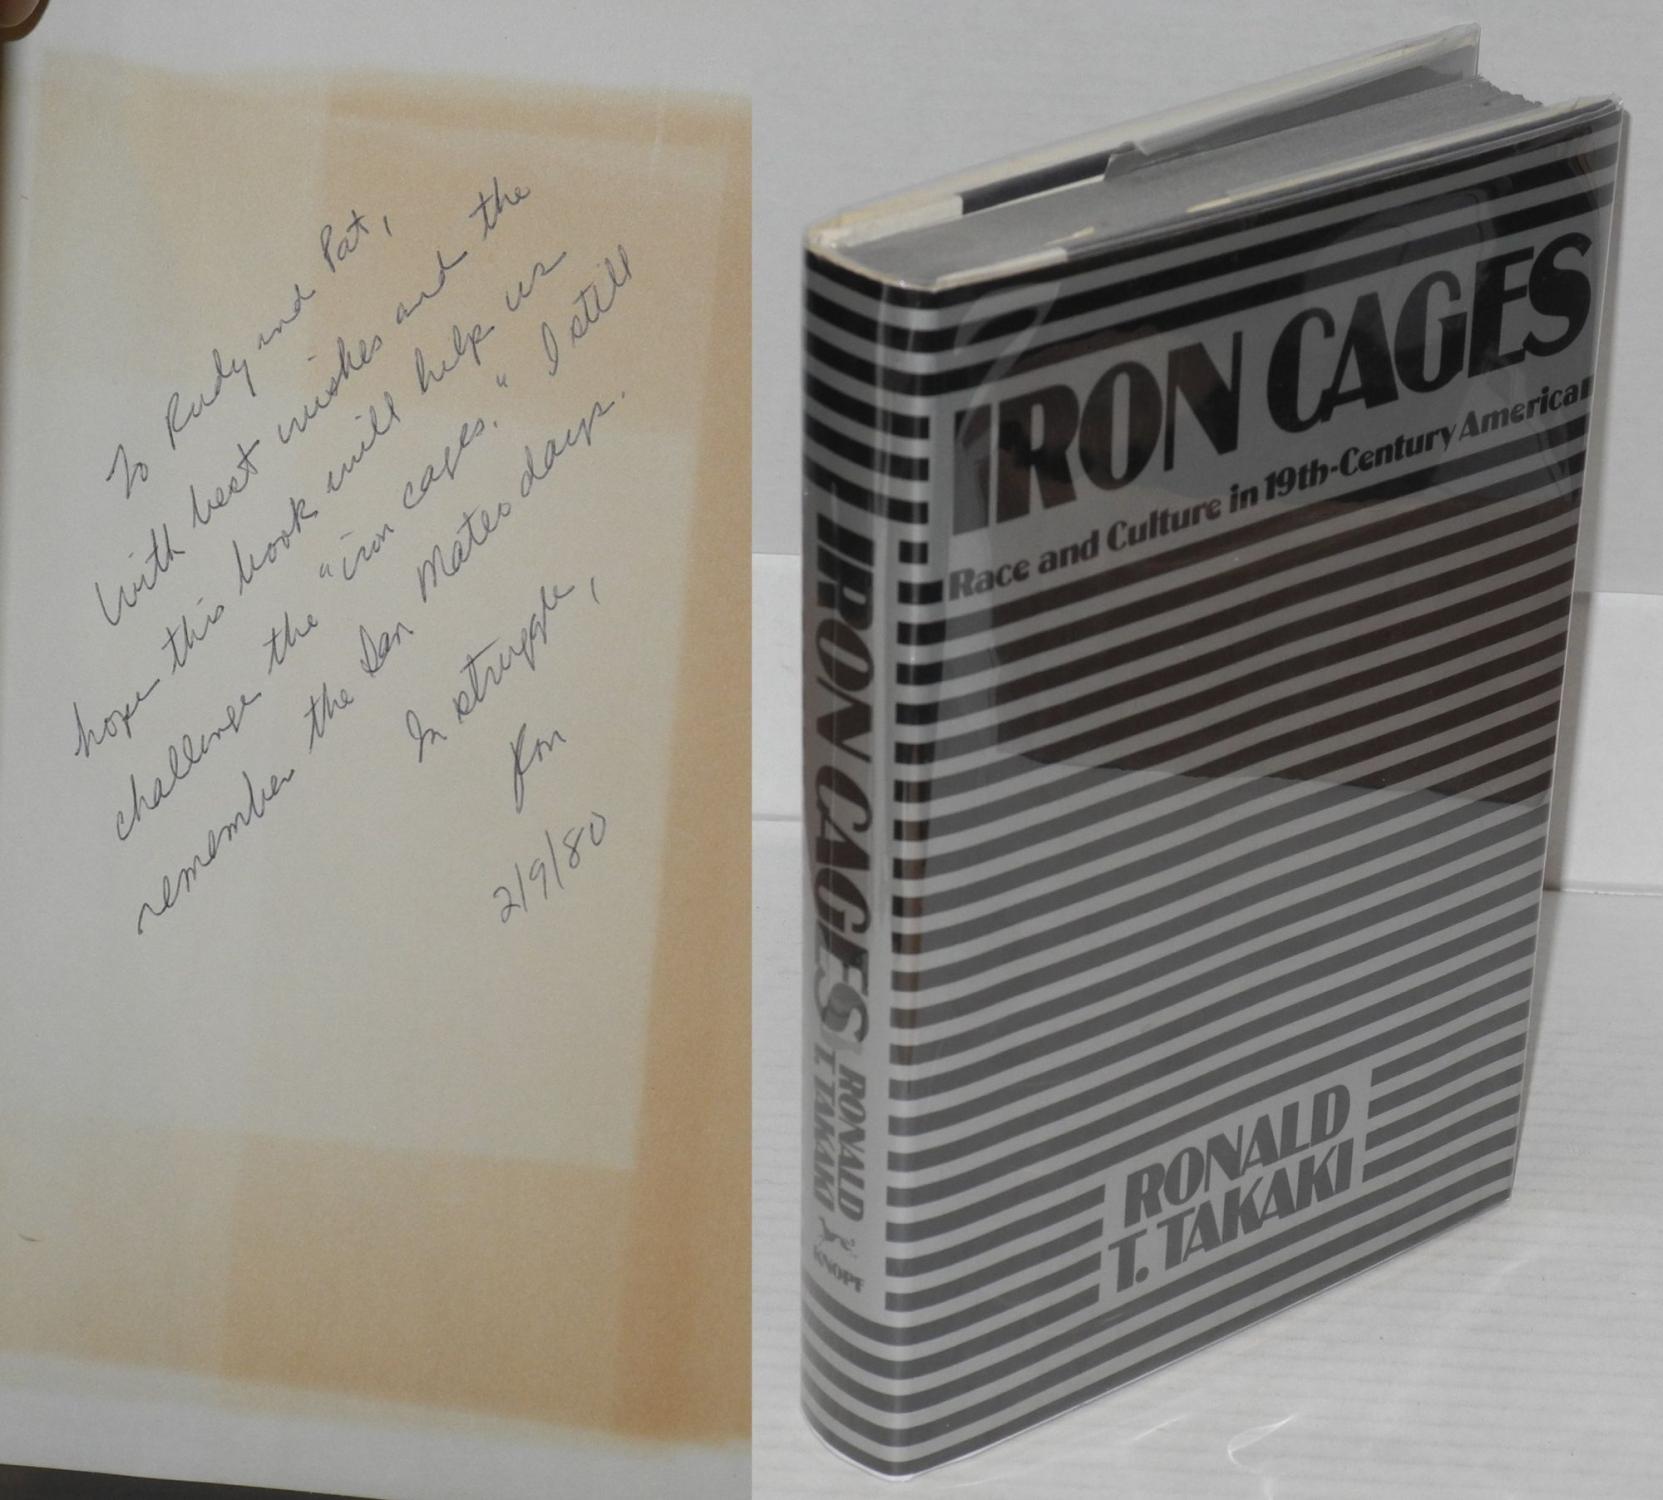 To Rudy and Pat,
With best wishes and the
hope this book will help us
challenge the "iron cages." I still
remember the San Mateo days.
In struggle,
Ron
2/9/80
IRON CAGES
Race and Culture in 19th-Century American
RONALD
T. TAKAKI
IRON CAGES
RONALD
T. TAKAKI
KNOPF